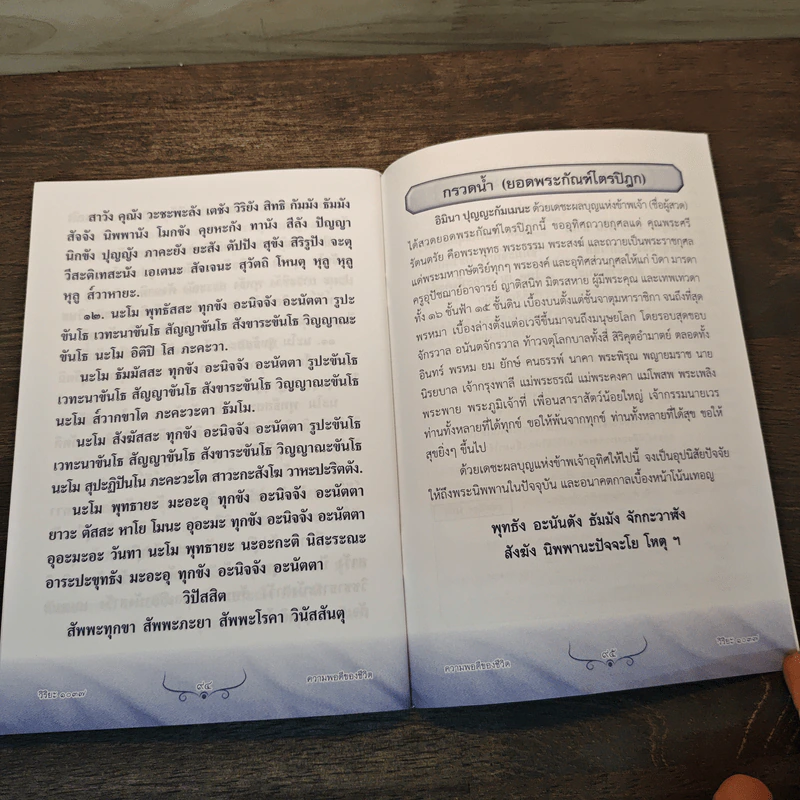 สาวัง คุณัง วะชะพะลัง เตชัง วิริยัง สิทธิ กัมมัง ธัมมัง
สัจจัง นิพพานัง โมกขัง คุยหะกัง ทานัง สีลัง ปัญญา
นิกขัง ปุญญัง ภาคะยัง ยะสัง ตัปปัง สุขัง สิริรูปัง จะตุ
วีสะติเทสะนัง เอเตนะ สัจเจนะ สุวัตถิ โหนตุ หุลู หุลู
หุลู ส์วาหายะ.
๑๒. นะโม พุทธัสสะ ทุกขัง อะนิจจัง อะนัตตา รูปะ
ขันโธ เวทะนาขันโธ สัญญาขันโธ สังขาระขันโธ วิญญาณะ
ขันโธ นะโม อิติปิ โส ภะคะวา.
นะโม ธัมมัสสะ ทุกขัง อะนิจจัง อะนัตตา รูปะขันโธ
เวทะนาขันโธ สัญญาขันโธ สังขาระขันโธ วิญญาณะขันโธ
นะโม ส์วากขาโต ภะคะวะตา ธัมโม.
นะโม สังฆัสสะ ทุกขัง อะนิจจัง อะนัตตา รูปะขันโธ
เวทะนาขันโธ สัญญาขันโธ สังขาระขันโธ วิญญาณะขันโธ
นะโม สุปะฏิปันโน ภะคะวะโต สาวะกะสังโฆ วาหะปะริตตัง.
นะโม พุทธายะ มะอะอุ ทุกขัง อะนิจจัง อะนัตตา
ยาวะ ตัสสะ หาโย โมนะ อุอะมะ ทุกขัง อะนิจจัง อะนัตตา
อุอะมะอะ วันทา นะโม พุทธายะ นะอะกะติ นิสะระณะ
อาระปะขุทธัง มะอะอุ ทุกขัง อะนิจจัง อะนัตตา
วิปัสสิต
สัพพะทุกขา สัพพะภะยา สัพพะโรคา วินัสสันตุ
วิริยะ ๑๐๓๗
๙๔
ความพอดีของชีวิต
กรวดน้ำ (ยอดพระกัณฑ์ไตรปิฎก)
อิมินา ปุญญะกัมเมนะ ด้วยเดชะผลบุญแห่งข้าพเจ้า (ชื่อผู้สวด)
ได้สวดยอดพระกัณฑ์ไตรปิฎกนี้ ขออุทิศถวายกุศลแด่ คุณพระศรี
รัตนตรัย คือพระพุทธ พระธรรม พระสงฆ์ และถวายเป็นพระราชกุศล
แด่พระมหากษัตริย์ทุกๆ พระองค์ และอุทิศส่วนกุศลให้แก่ บิดา มารดา
ครูอุปัชฌาย์อาจารย์ ญาติสนิท มิตรสหาย ผู้มีพระคุณ และเทพเทวดา
ทั้ง ๑๖ ชั้นฟ้า ๑๕ ชั้นดิน เบื้องบนตั้งแต่ชั้นจาตุมหาราชิกา จนถึงที่สุด
พรหมา เบื้องล่างตั้งแต่อเวจีขึ้นมาจนถึงมนุษยโลก โดยรอบสุดขอบ
จักรวาล อนันตจักรวาล ท้าวจตุโลกบาลทั้งสี่ สิริคุตอำมาตย์ ตลอดทั้ง
อินทร์ พรหม ยม ยักษ์ คนธรรพ์ นาคา พระพิรุณ พญายมราช นาย
นิรยบาล เจ้ากรุงพาลี แม่พระธรณี แม่พระคงคา แม่โพสพ พระเพลิง
พระพาย พระภูมิเจ้าที่ เพื่อนสาราสัตว์น้อยใหญ่ เจ้ากรรมนายเวร
ท่านทั้งหลายที่ได้ทุกข์ ขอให้พ้นจากทุกข์ ท่านทั้งหลายที่ได้สุข ขอให้
สุขยิ่งๆ ขึ้นไป
ด้วยเดชะผลบุญแห่งข้าพเจ้าอุทิศให้ไปนี้ จงเป็นอุปนิสัยปัจจัย
ให้ถึงพระนิพพานในปัจจุบัน และอนาคตกาลเบื้องหน้าโน้นเทอญ
พุทธัง อะนันตัง ธัมมัง จักกะวาฬัง
สังฆัง นิพพานะปัจจะโย โหตุ ฯ
ความพอดีของชีวิต
๙๕
วิริยะ ๑๐๓๗